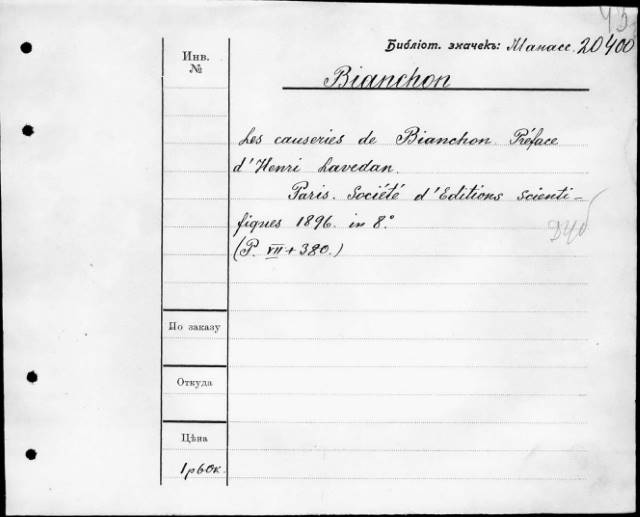 Библіот. значекъ: Манасс. 20400
Инв. №
Bianchon
Les causeries de Bianchon. Préface
d'Henri Lavedan.
Paris. Société d'Editions Scienti-
fiques 1896. in 8.°
(P. VII + 380.)
По заказу
Откуда
Цѣна
1р60к.